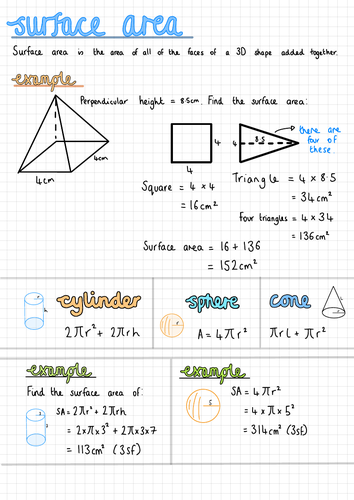 surface area
Surface area is the area of all of the faces of a 3D shape added together.
example
Perpendicular height = 8.5cm. Find the surface area:
4cm
4cm
4
4
8.5
4
there are
four of
these.
Square = 4 × 4
= 16cm²
Triangle = 4 × 8.5
= 34cm²
Four triangles = 4 × 34
= 136cm²
Surface area = 16 + 136
= 152cm²
cylinder
2πr² + 2πrh
sphere
A = 4πr²
cone
πrl + πr²
example
Find the surface area of:
SA = 2πr² + 2πrh
= 2×π×3² + 2×π×3×7
= 113cm² (3sf)
example
5
SA = 4πr²
= 4 × π × 5²
= 314cm² (3sf)